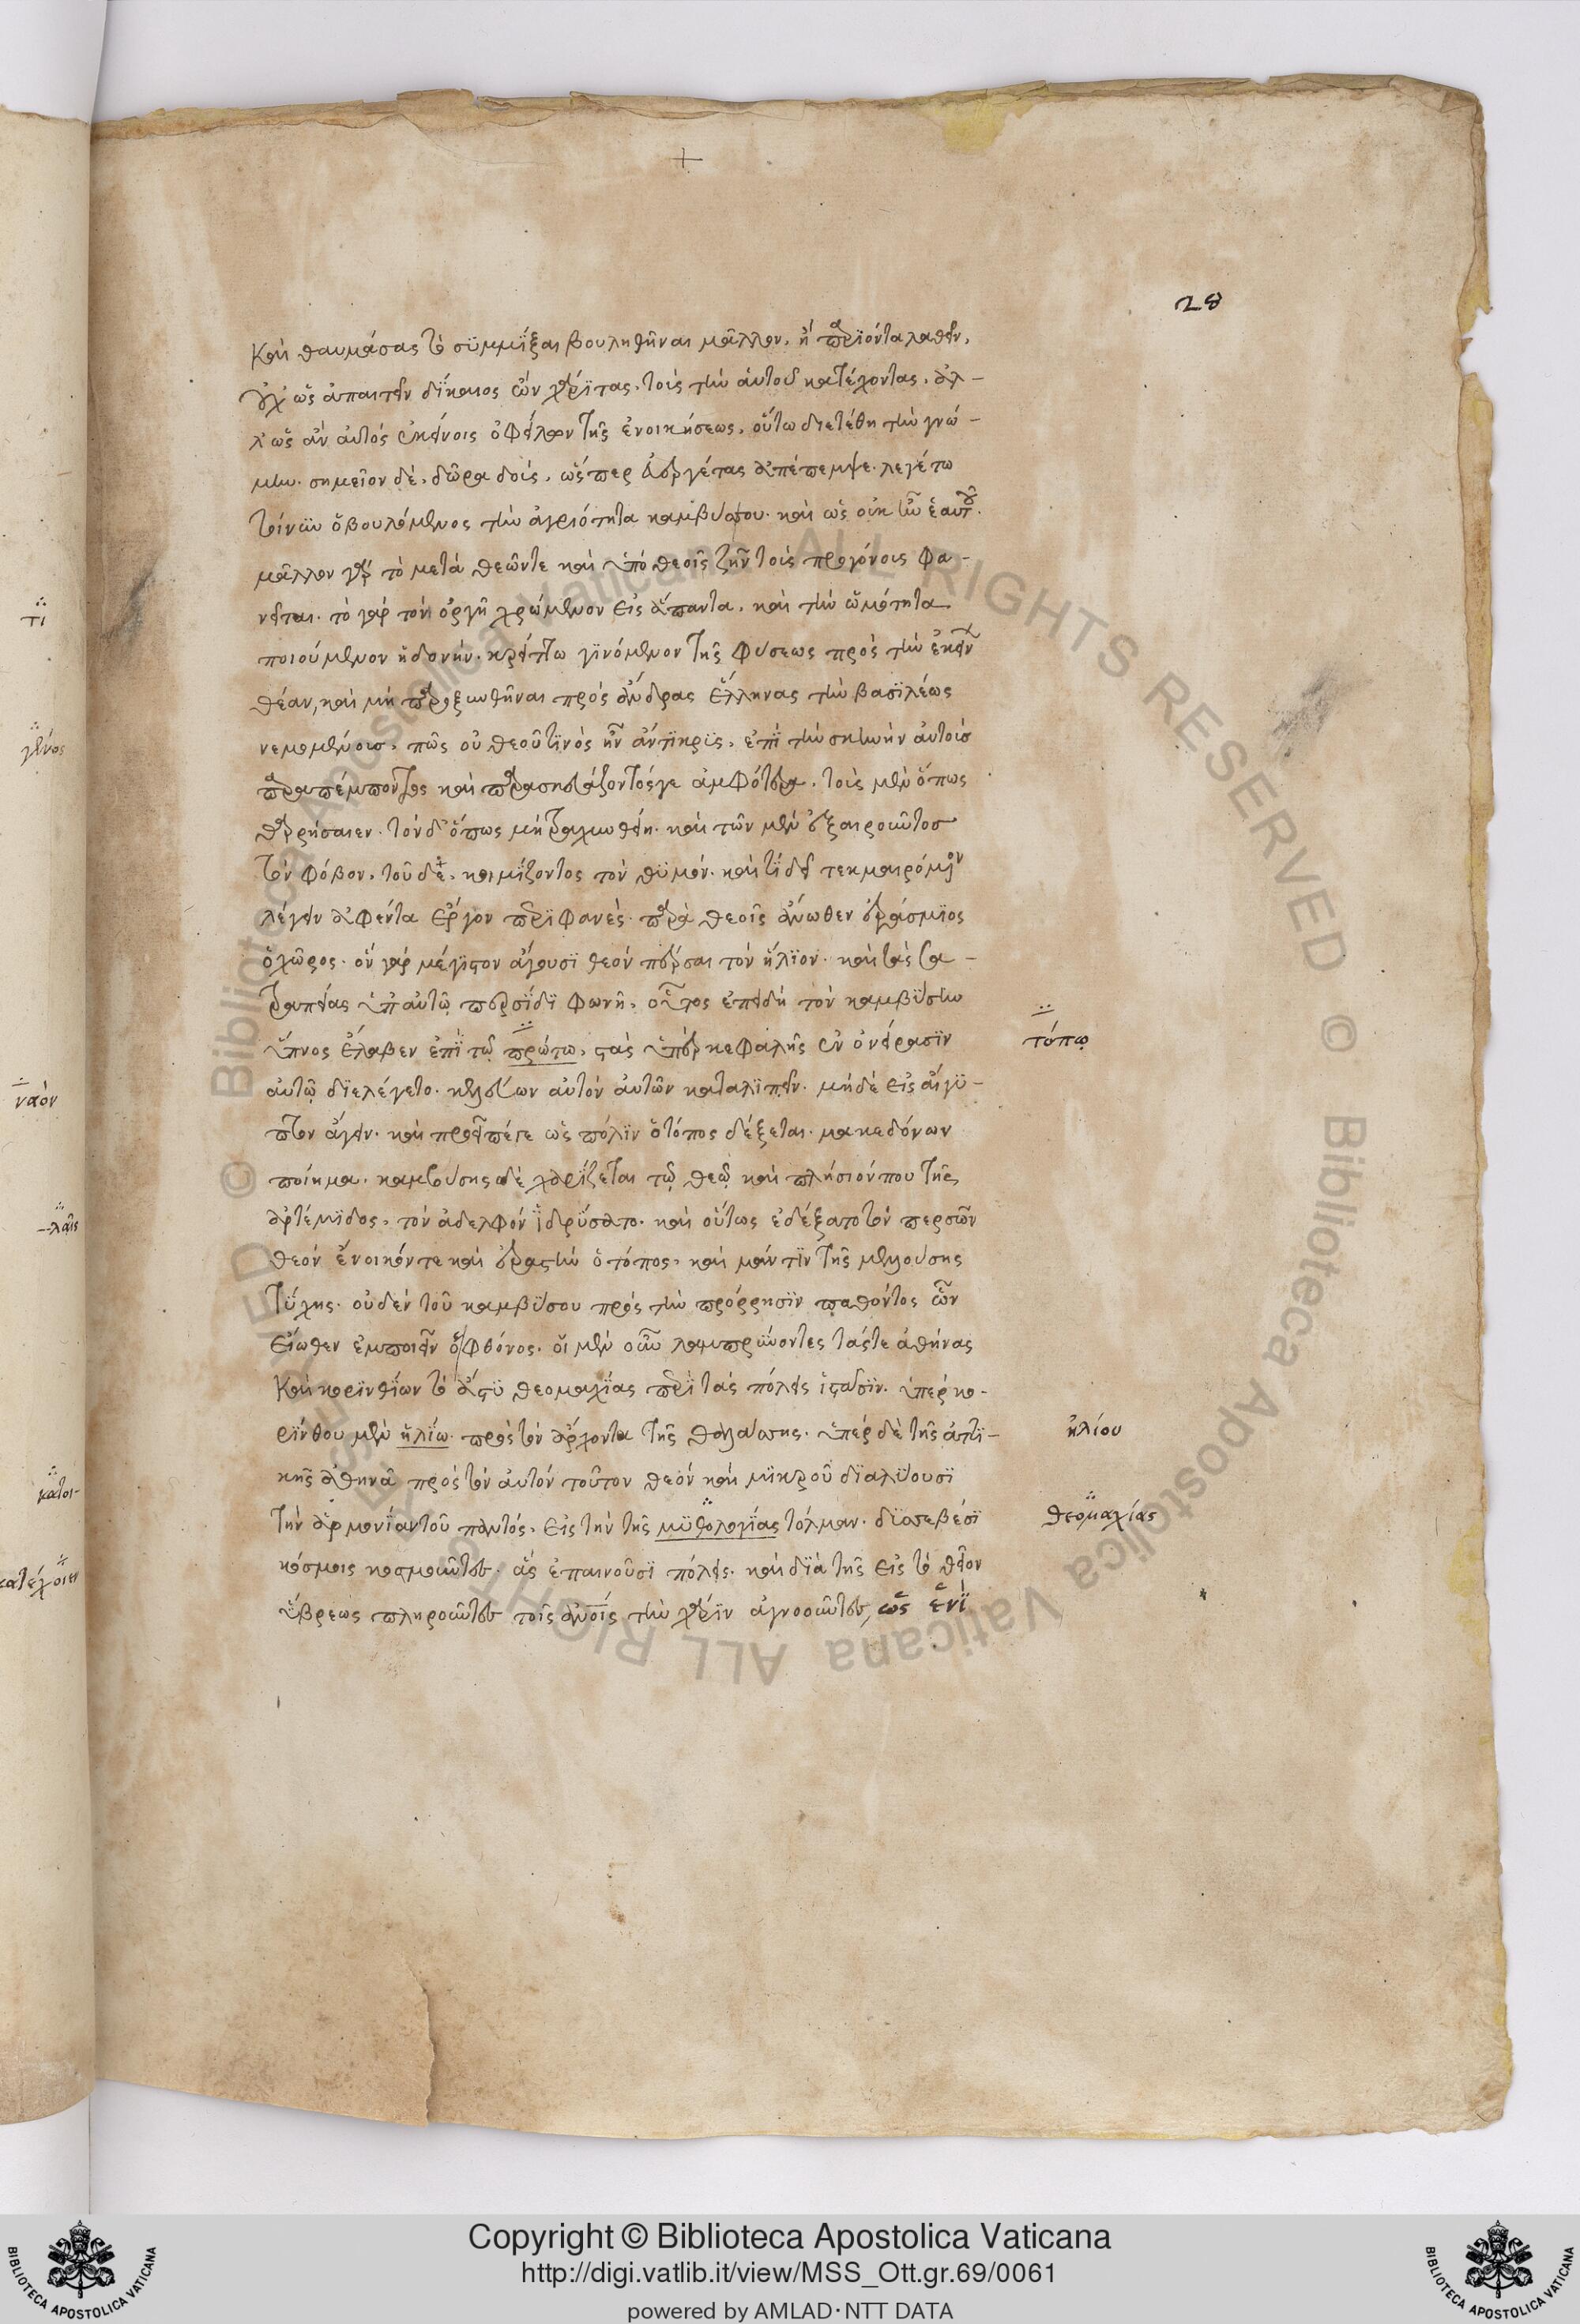 28
καὶ θαυμάσας τὸ συμμῖξαι βουληθῆναι μᾶλλον, ἢ παριόντα λαθεῖν,
οὐχ ὡς ἀπαιτεῖν δίκαιος ὢν χάριτας, τοὺς τὴν αὐτοῦ κατέχοντας, ἀλ-
λ' ὡς ἂν αὐτὸς ἐκείνοις ὀφείλων τῆς ἐνοικήσεως, οὕτω διετέθη τὴν γνώ-
μην. σημεῖον δὲ, δῶρα δοὺς, ὥσπερ εὐεργέτας ἀπέπεμψε. λεγέτω
τοίνυν ὁ βουλόμενος τὴν ἀγριότητα καμβύσου. καὶ ὡς οὐκ ἦν ἑαυτοῦ.
μᾶλλον γὰρ τὸ μετὰ θεῶν τε καὶ ὑπὸ θεοῖς ζῆν τοὺς προγόνους φα-
νεῖται. τὸ γὰρ τὸν ὀργῇ χρώμενον εἰς ἅπαντα, καὶ τὴν ὠμότητα
ποιούμενον ἡδονὴν, κρείττω γινόμενον τῆς φύσεως πρὸς τὴν ἐκείνων
θέαν, καὶ μὴ παροξυνθῆναι πρὸς ἄνδρας ἕλληνας τὴν βασιλέως
νεμομένους, πῶς οὐ θεοῦ τινὸς ἦν ἄντικρις, ἐπὶ τὴν σκηνὴν αὐτοὺς
παραπέμποντος καὶ παρασκευάζοντός γε ἀμφότερα, τοὺς μὲν ὅπως
θαρρήσαιεν, τὸν δ' ὅπως μὴ τραχυνθείη. καὶ τῶν μὲν ἐξαιροῦντος
τὸν φόβον, τοῦ δὲ, κοιμίζοντος τὸν θυμόν. καὶ τί δεῖ τεκμαιρόμενον
λέγειν ἀφέντα ἔργον περιφανές. παρὰ θεοῖς ἄνωθεν ἐράσμιος
ὁ χῶρος. ὃν γὰρ μέγιστον ἄγουσι θεὸν πέρσαι τὸν ἥλιον. καὶ τὰς τα-
ραπείας ὑπ' αὐτῷ περσίδι φωνῇ, οὗτος ἐπειδὴ τὸν καμβύσην
ὕπνος ἔλαβεν ἐπὶ τῷ πρώτω, στὰς ὑπὲρ κεφαλῆς ἐν ὀνείρασιν
αὐτῷ διελέγετο. κελεύων αὐτὸν αὐτῶν καταλιπεῖν. μηδὲ εἰς αἴγυ-
πτον ἄγειν. καὶ προεῖπέ γε ὡς πόλιν ὁ τόπος δέξεται. μακεδόνων
ποίημα. καμβύσης δὲ χαρίζεται τῷ θεῷ καὶ πλησίον που τῆς
ἀρτέμιδος, τὸν ἀδελφὸν ἱδρύσατο. καὶ οὕτως ἐδέξατο τὸν περσῶν
θεὸν ἔνοικόν τε καὶ ἐραστὴν ὁ τόπος, καὶ μάντιν τῆς μενούσης
τύχης. οὐδὲν τοῦ καμβύσου πρὸς τὴν πρόρρησιν παθόντος ὧν
εἴωθεν ἐμποιεῖν ὁ φθόνος. οἱ μὲν οὖν λαμπρύνοντες τάς τε ἀθήνας
καὶ κορινθίων τὸ ἄστυ θεομαχίας περὶ τὰς πόλεις ἱστᾶσιν. ὑπὲρ κο-
ρίνθου μὲν ἡλίω. πρὸς τὸν ἄρχοντα τῆς θαλάσσης. ὑπὲρ δὲ τῆς ἀττι-
κῆς ἀθηνᾶ πρὸς τὸν αὐτὸν τοῦτον θεὸν καὶ μικροῦ διαλύουσι
τὴν ἁρμονίαν τοῦ παντός, εἰς τὴν τῆς μυθολογίας τόλμαν. δυσσεβέσι
κόσμοις κοσμοῦντες. ἃς ἐπαινοῦσι πόλεις. καὶ διὰ τῆς εἰς τὸ θεῖον
ὕβρεως πληροῦντες τοῖς ἀνοῖς τὴν χάριν ἀγνοοῦντες, ὡς ἑνὶ
τόπῳ
ἡλίου
θεομαχίας
τι
γένος
ναὸν
λαῖς
κατοι-
κατέχοιεν
Copyright © Biblioteca Apostolica Vaticana
http://digi.vatlib.it/view/MSS_Ott.gr.69/0061
powered by AMLAD·NTT DATA